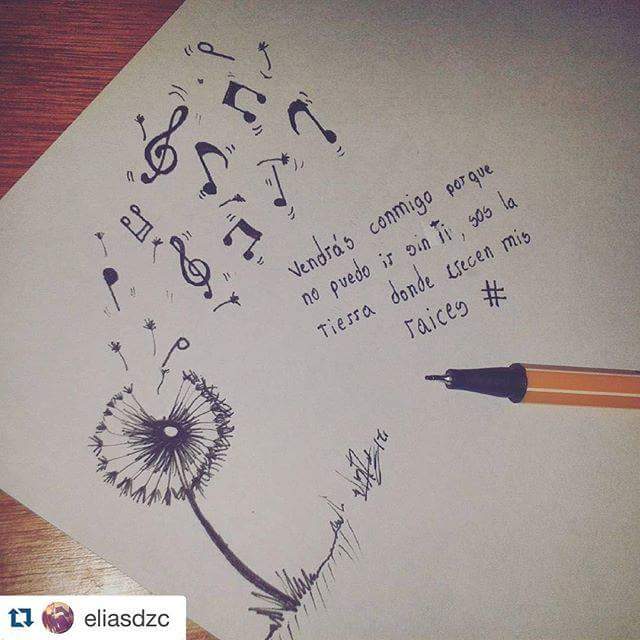 Vendrás conmigo porque
no puedo ir sin ti, sos la
tierra donde crecen mis
raices #
eliasdzc